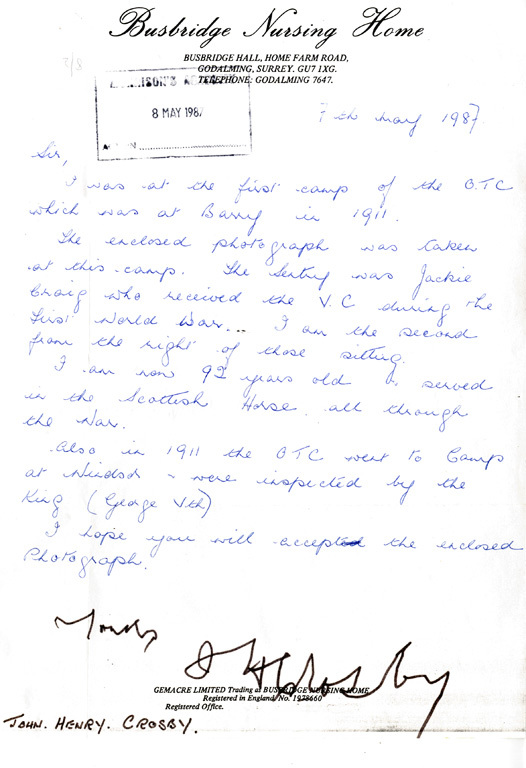 Busbridge Nursing Home
BUSBRIDGE HALL, HOME FARM ROAD,
GODALMING, SURREY. GU7 1XG.
TELEPHONE: GODALMING 7647.
8 MAY 1987
7th May 1987.
Sir,
I was at the first camp of the O.T.C
which was at Barry in 1911.
The enclosed photograph was taken
at this camp. The Sentry was Jackie
Craig who received the V.C during the
First World War... I am the second
from the right of those sitting.
I am now 92 years old & served
in the Scottish Horse all through
the War.
Also in 1911 the OTC went to Camp
at Windsor - were inspected by the
King (George Vth)
I hope you will accept the enclosed
Photograph.
Yours
J H Crosby
GEMACRE LIMITED Trading as BUSBRIDGE NURSING HOME
Registered in England No. 1978660
Registered Office.
JOHN. HENRY. CROSBY.